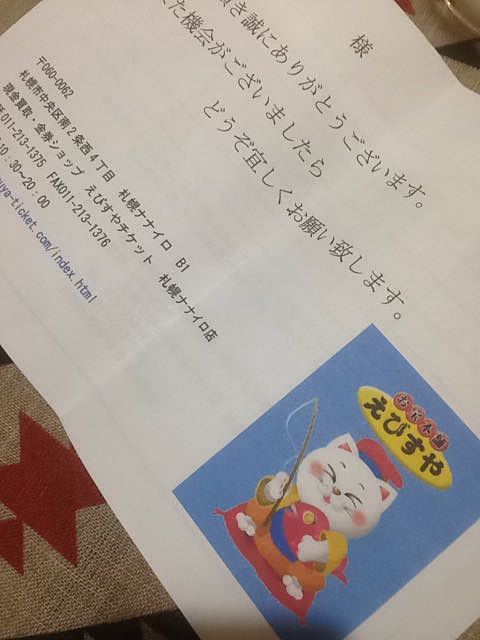 様
頂き誠にありがとうございます。
た機会がございましたら
どうぞ宜しくお願い致します。
〒060-0062
札幌市中央区南2条西4丁目 札幌ナナイロ B1
現金買取・金券ショップ えびすやチケット 札幌ナナイロ店
TEL011-213-1375 FAX011-213-1376
10:30~20:00
uya-ticket.com/index.html
お宝本舗
えびすや